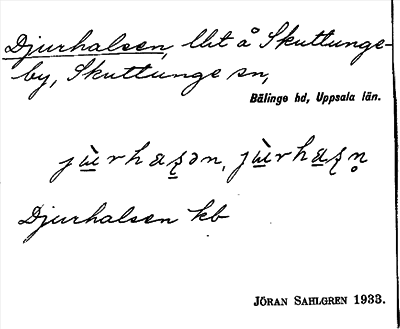 Djurhalsen, llit å Skuttunge-
by, Skuttunge sn,
Bälinge hd, Uppsala län.
Djurhalsen kb
JÖRAN SAHLGREN 1933.